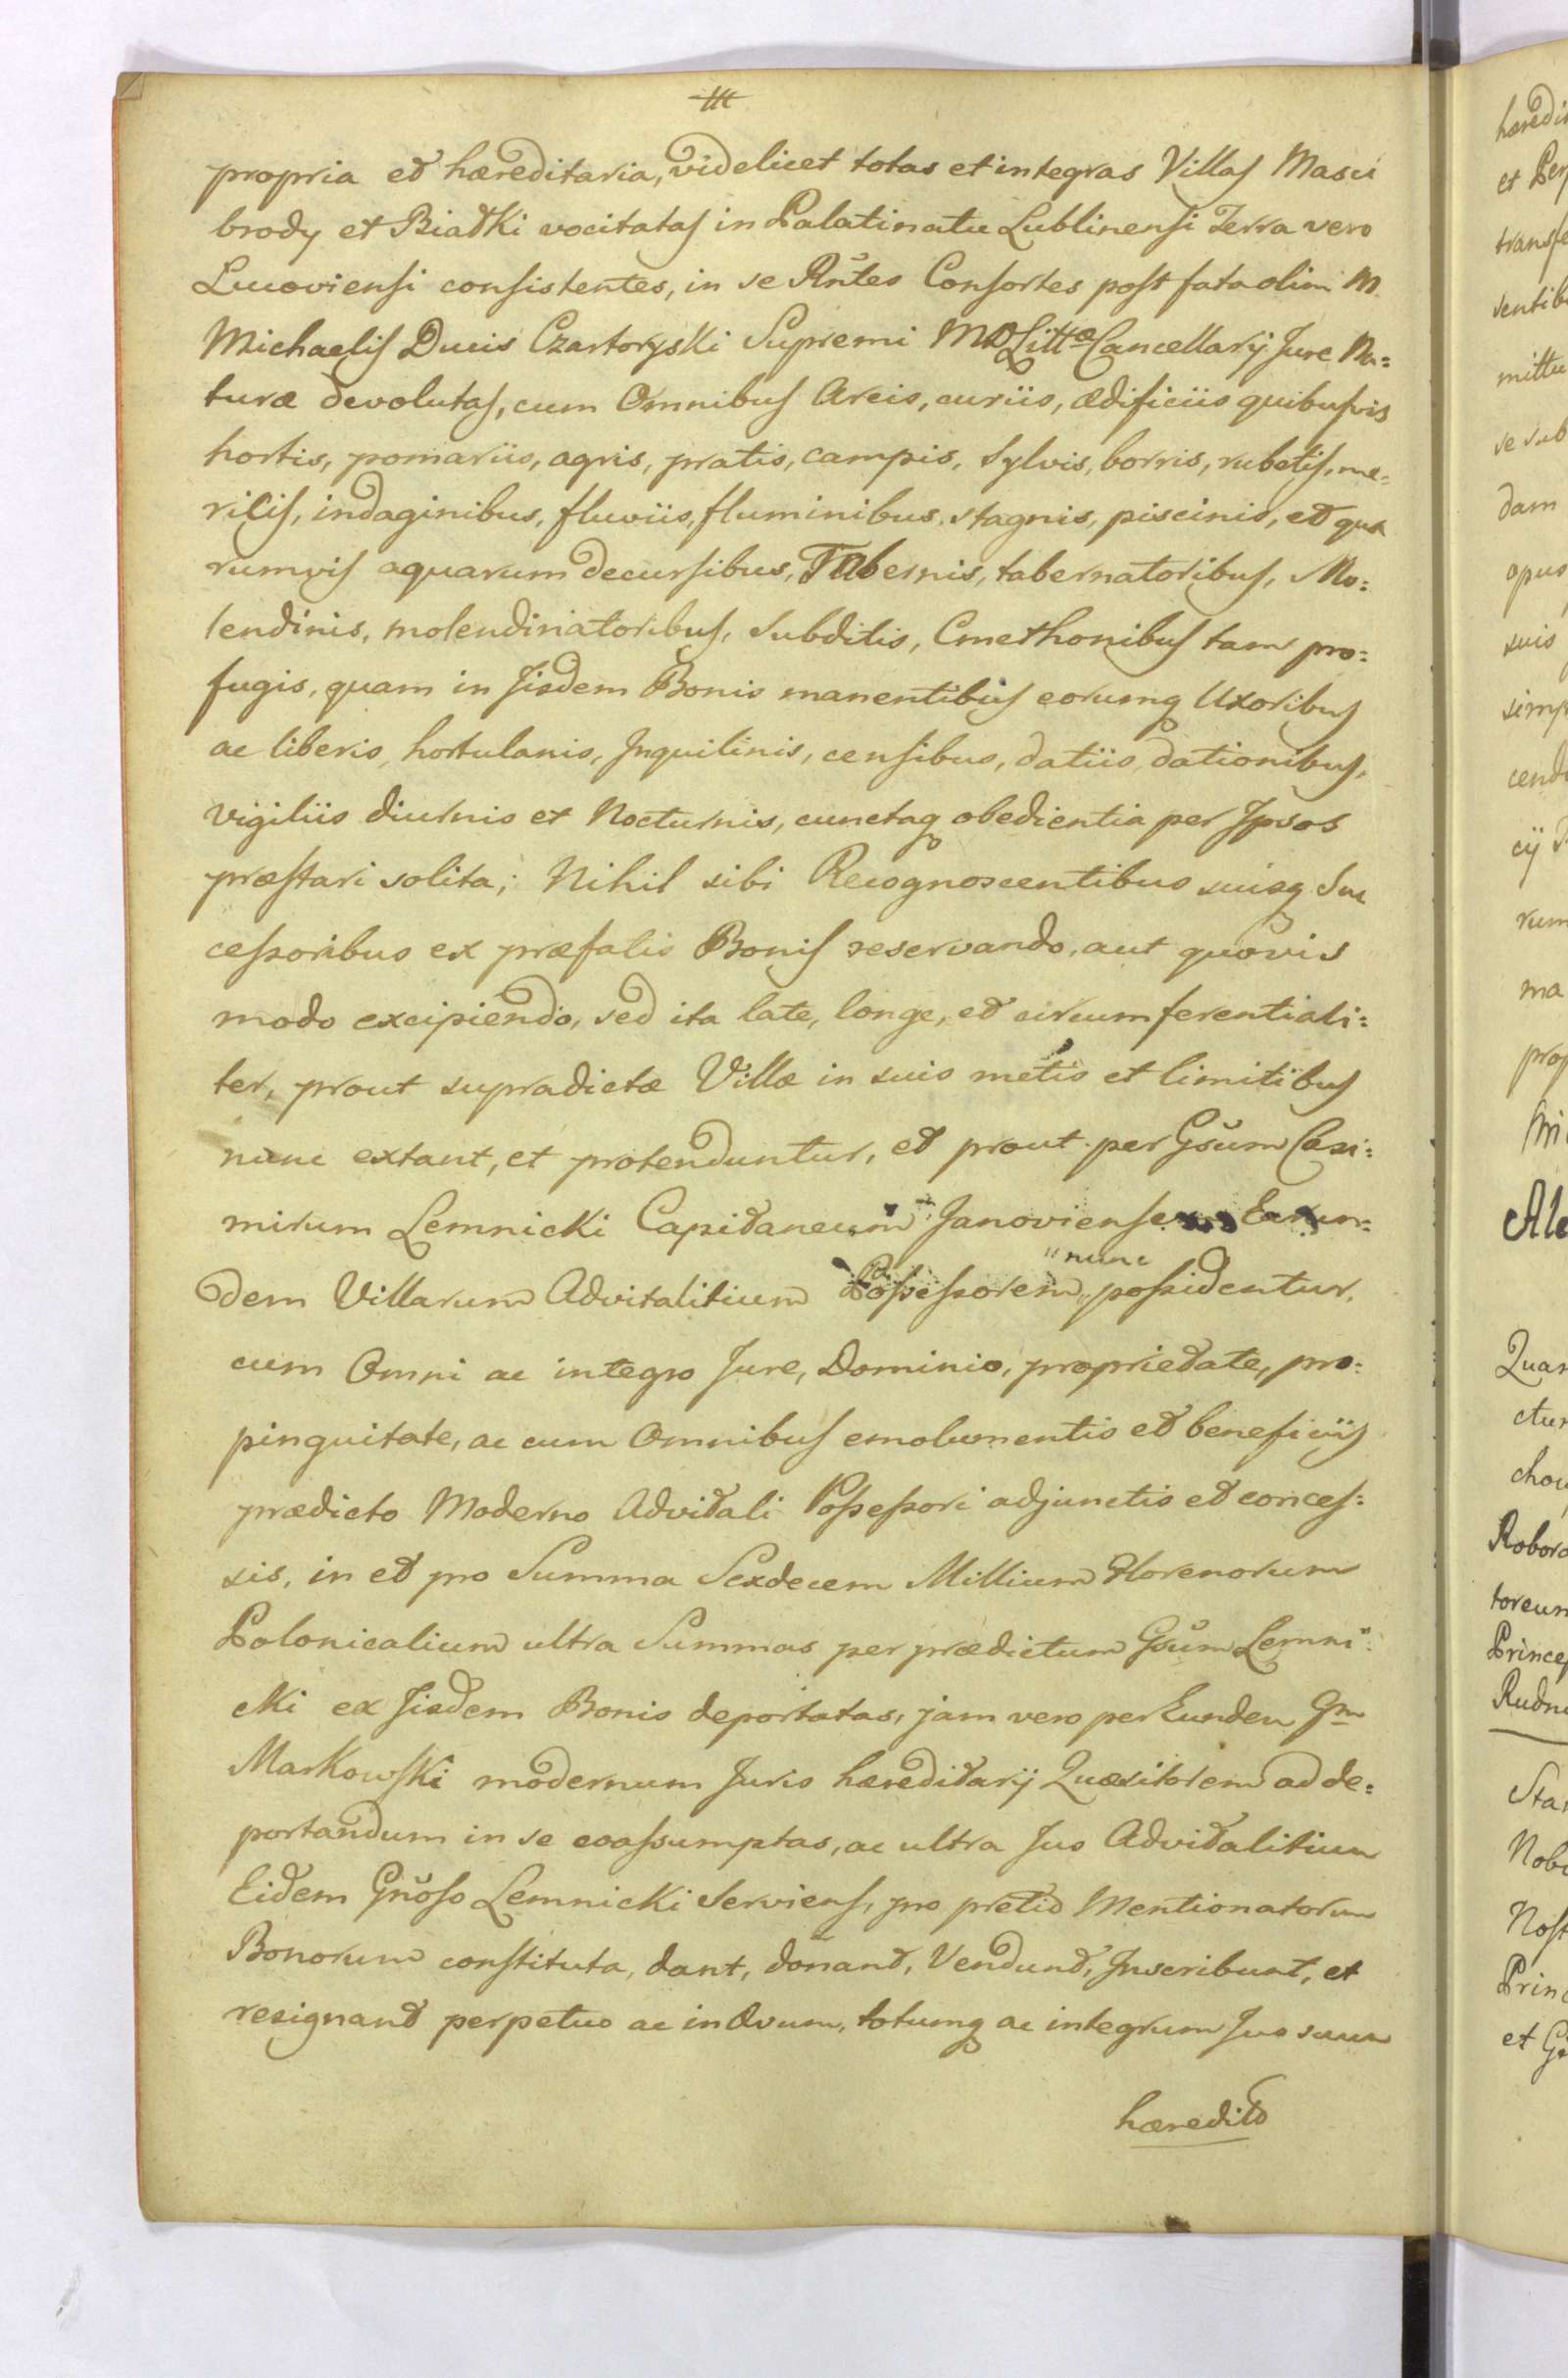 propria et hæreditaria, videlicet totas et integras Villas Masci
brody et Biadki vocitatas in Palatinatu Lublinensi Terra vero
Lucoviensi consistentes, in se Rñtes Consortes post fata olim M.
Michaelis Ducis Czartoryski Supremi MDLittæ Cancellarij Jure Na=
turæ devolutas, cum Omnibus Areis, curiis, ædificiis quibusvis
hortis, pomariis, agris, pratis, campis, Sylvis, borris, rubetis, me=
ricis, indaginibus, fluviis, fluminibus, stagnis, piscinis, et qua
rumvis aquarum decursibus, Tabernis, tabernatoribus, Mo=
lendinis, molendinatoribus, Subditis, Cmethonibus tam pro=
fugis, quam in Jisdem Bonis manentibus eorumq Uxoribus
ac liberis, hortulanis, Inquilinis, censibus, datiis, dationibus,
vigiliis diurnis et Nocturnis, cunctaq obedientia per Ipsos
præstari solita; Nihil sibi Recognoscentibus suisq Suc
cessoribus ex præfatis Bonis reservando, aut quovis
modo excipiendo, sed ita late, longe, et circumferentiali=
ter, prout supradictæ Villæ in suis metis et limitibus
nunc extant, et protenduntur, et prout per Gsum Casi=
mirum Lemnicki Capitaneum Janoviensem Earun=
dem Villarum Advitalitium Possessorem "nunc possidentur,
cum Omni ac integro Jure, Dominio, proprietate, pro=
pinquitate, ac cum Omnibus emolumentis et beneficiis
prædicto Moderno Advitali Possessori adjunctis et conces=
sis, in et pro Summa Sexdecem Millium Florenorum
Polonicalium ultra Summas per prædictum Gsum Lemni=
cki ex Jisdem Bonis deportatas, jam vero per Eunden Gm
Markowski modernum Juris hæreditarij Quæsitorem ad de=
portandum in se coassumptas, ac ultra Jus Advitalitium
Eidem Gñoso Lemnicki Serviens, pro pretio Mentionatorum
Bonorum constituta, dant, donant, Vendunt, Inscribunt, et
resignant perpetuo ac in Ævum, totumq ac integrum Jus suum
hæredita